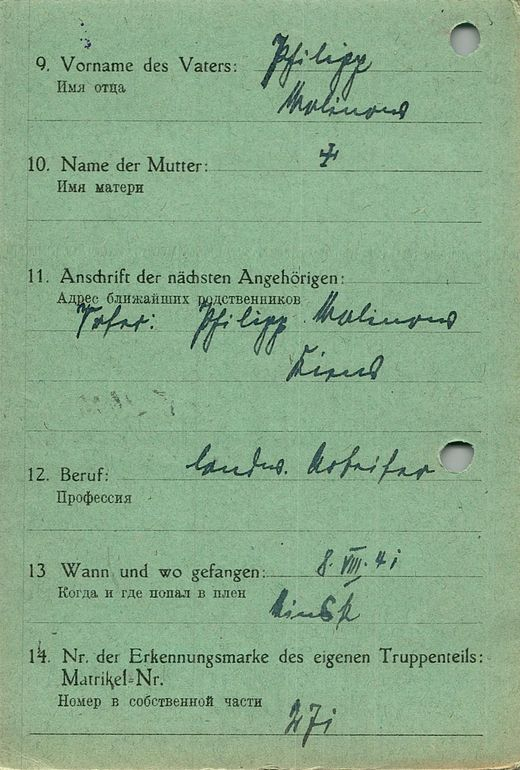 9. Vorname des Vaters: Philipp
Имя отца
Malinows
10. Name der Mutter: +
Имя матери
11. Anschrift der nächsten Angehörigen:
Адрес ближайших родственников
Vater: Philipp Malinows
12. Beruf: landw. Arbeiter
Профессия
13 Wann und wo gefangen: 8. VIII. 41
Когда и где попал в плен
Minsk
14. Nr. der Erkennungsmarke des eigenen Truppenteils:
Matrikel-Nr.
Номер в собственной части